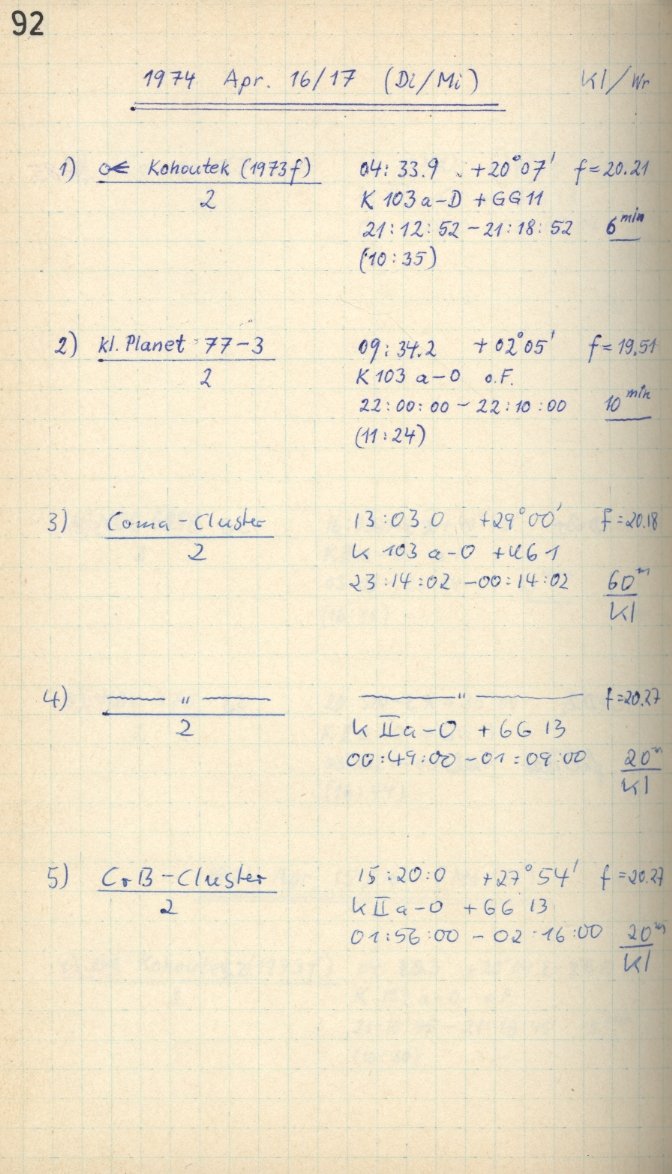 92
1974 Apr. 16/17 (Di/Mi) Kl/Wr
1) Kohoutek (1973f) 04:33.9 +20°07' f=20.21
2 K 103a-D + GG11
21:12:52 - 21:18:52 6 min
(10:35)
2) kl. Planet 77-3 09:34.2 +02°05' f=19.51
2 K 103 a-O o.F.
22:00:00 - 22:10:00 10 min
(11:24)
3) Coma-Cluster 13:03.0 +29°00' f=20.18
2 K 103 a-O + UG1
23:14:02 - 00:14:02 60m
Kl
4) — " — — " — f=20.27
2 K IIa-O + GG 13
00:49:00 - 01:09:00 20m
Kl
5) CrB-Cluster 15:20:0 +27°54' f=20.27
2 K IIa-O + GG 13
01:56:00 - 02:16:00 20m
Kl